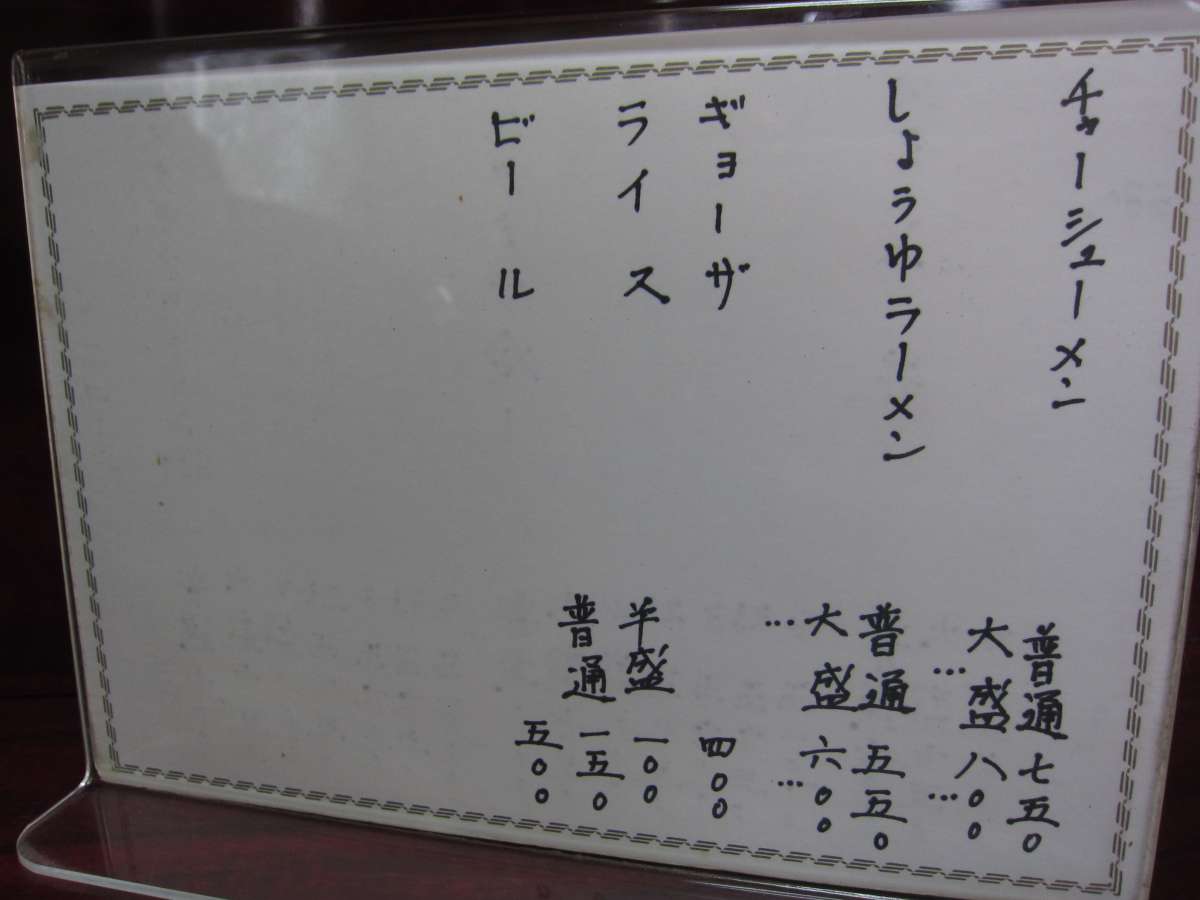 チャーシューメン
普通 七五〇
大盛 八〇〇
しょうゆラーメン
普通 五五〇
大盛 六〇〇
ギョーザ 四〇〇
ライス
半盛 一〇〇
普通 一五〇
ビール 五〇〇